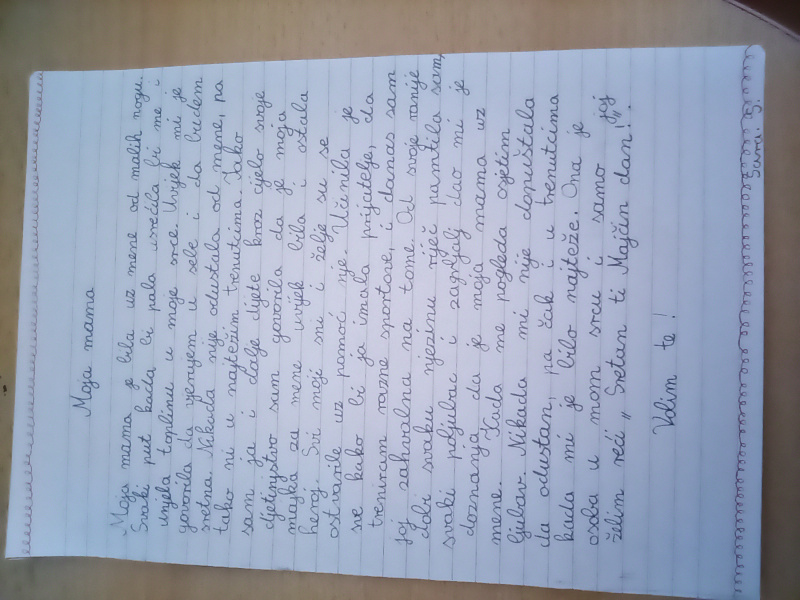 Moja mama
Moja mama je bila uz mene od malih nogu.
Svaki put kada bi pala usrećila bi me i
unjela toplinu u moje srce. Uvijek mi je
govorila da vjerujem u sebe i da budem
sretna. Nikada nije odustala od mene, pa
tako ni u najtežim trenutcima. Iako
sam ja i dalje dijete kroz cijelo svoje
djetinjstvo sam govorila da je moja
majka za mene uvijek bila i ostala
heroj. Svi moji sni i želje su se
ostvarile uz pomoć nje. Učinila je
sve kako bi ja imala prijatelje, da
treniram razne sportove, i danas sam
joj zahvalna na tome. Od svoje ranije
dobi svaku njezinu riječ pamtila sam,
svaki poljubac i zagrljaj dao mi je
doznanja da je moja mama uz
mene. Kada me pogleda osjetim
ljubav. Nikada mi nije dopuštala
da odustan, pa čak i u trenutcima
kada mi je bilo najteže. Ona je
osoba u mom srcu i samo joj
želim reći „ Sretan ti Majčin dan!".
Volim te!
Sara. S.